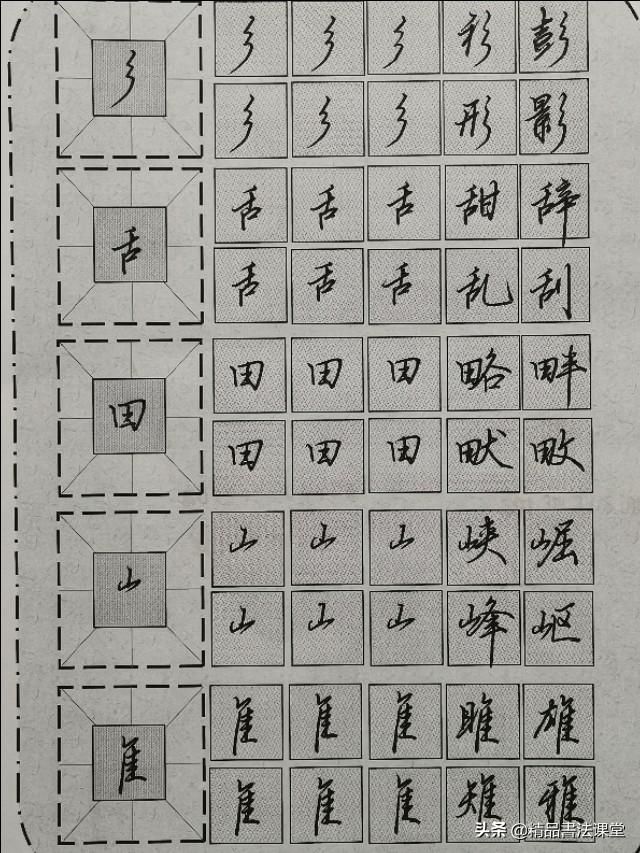 彡
彡 彡 彡 彩 彭
彡 彡 彡 形 影
舌
舌 舌 舌 甜 辞
舌 舌 舌 乱 刮
田
田 田 田 略 畔
田 田 田 畎 畋
山
山 山 山 峡 崛
山 山 山 峰 岖
隹
隹 隹 隹 雄
隹 隹 隹 雉 雅
头条 @精品書法课堂